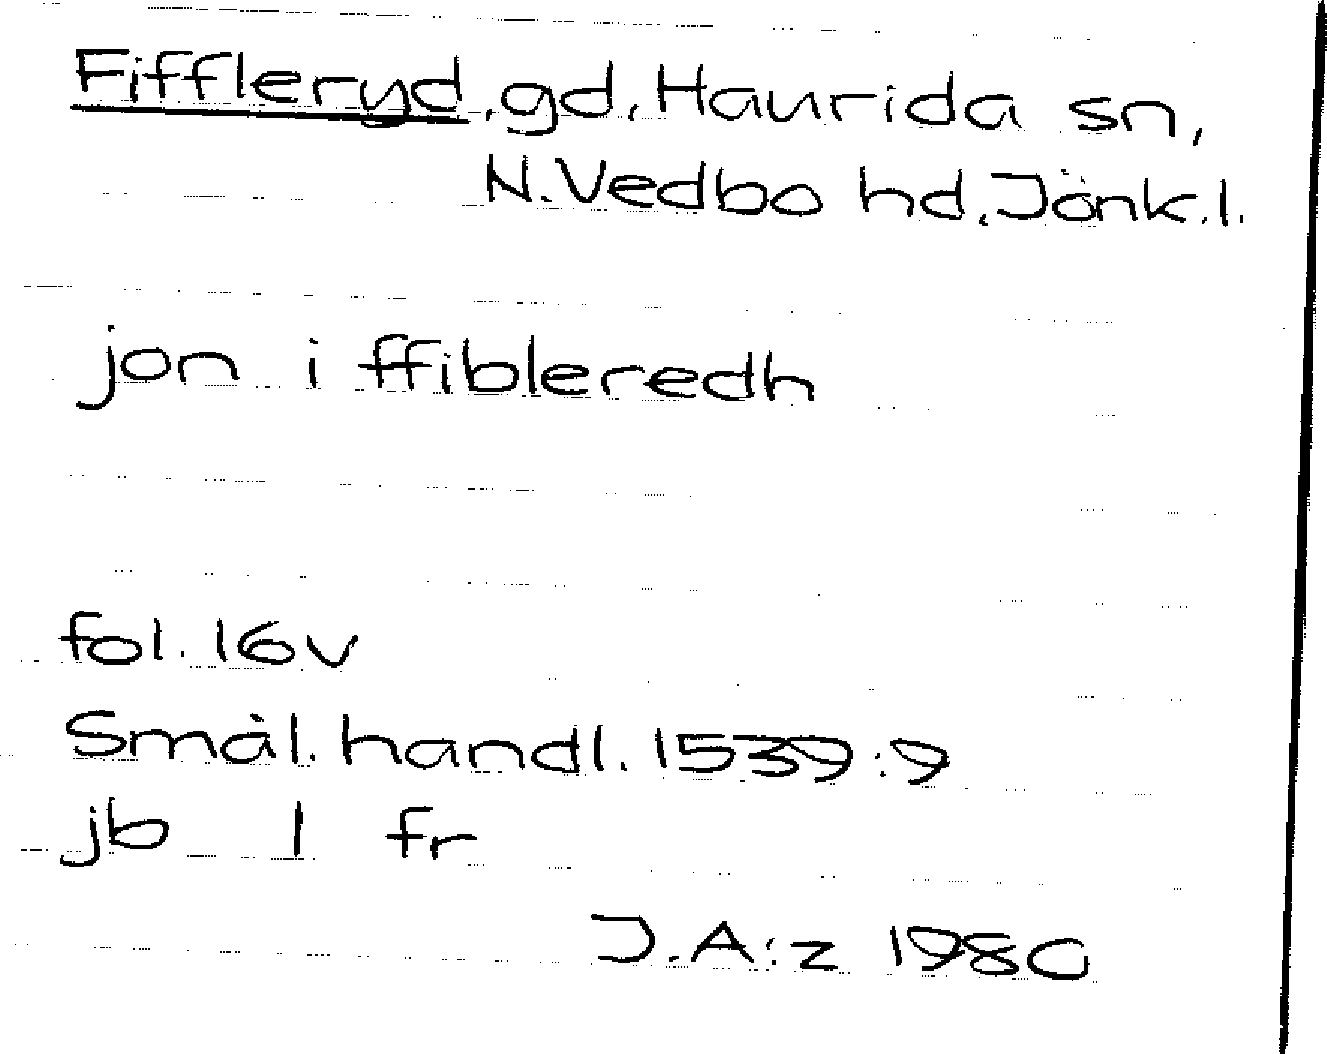 Fiffleryd, gd, Haurida sn,
N.Vedbo hd, Jönk.l.
jon i ffibleredh
fol. 16v
Smål. handl. 1539:9
jb 1 fr
J.A:z 1980